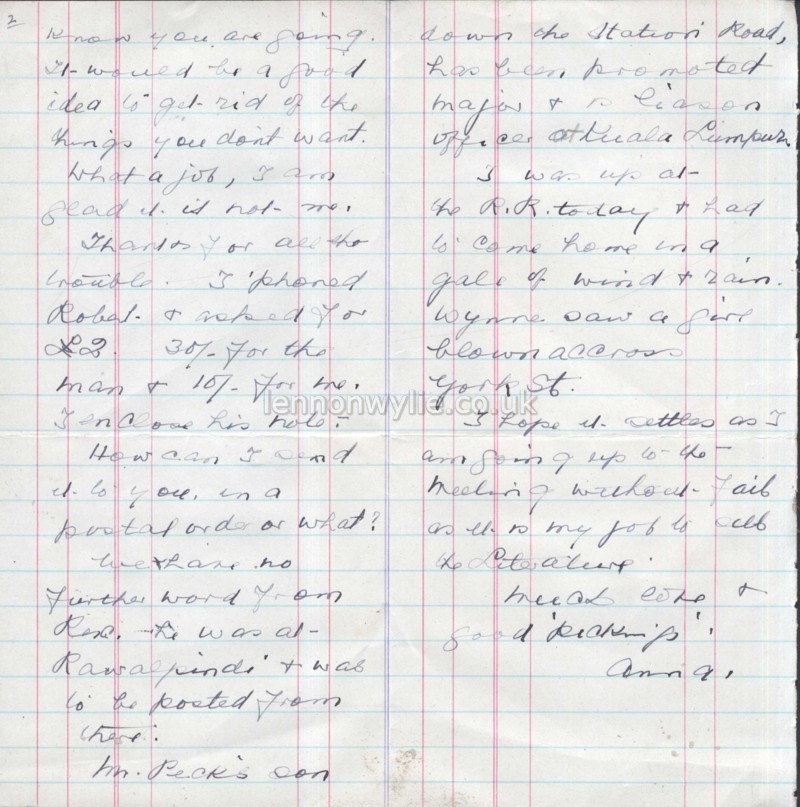 2
know you are going.
It would be a good
idea to get rid of the
things you dont want.
What a job, I am
glad it is not me.
Thanks for all the
trouble. I 'phoned
Robat. & asked for
£2. 30/- for the
man & 10/- for me.
I enclose his note.
How can I send
it to you, in a
postal order or what?
We have no
further word from
Rex. He was at
Rawalpindi & was
to be posted from
there.
Mr. Peck's son
down the Station Road,
has been promoted
major & is liason
officer at Kuala Lumpur.
I was up at
the R.R. today & had
to come home in a
gale of wind & rain.
Wynne saw a girl
blown accross
York St.
I hope it settles as I
am going up to the
meeting without fail
as it is my job to sell
the Literature.
Much love &
good 'packings'.
Anna.
lennonwylie.co.uk